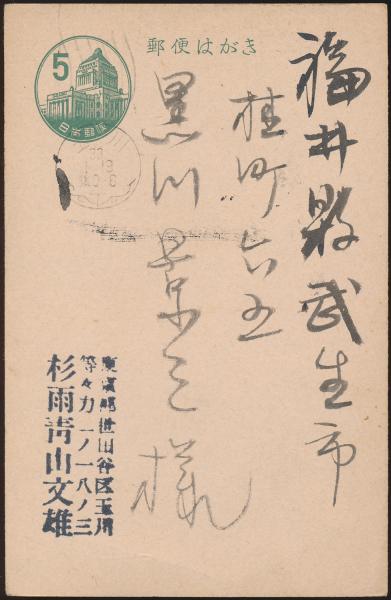 郵便はがき
5
日本郵便
福井縣武生市
桂町六五
黒川景三様
東京都世田谷区玉川
等々力一ノ一八ノ三
杉雨青山文雄